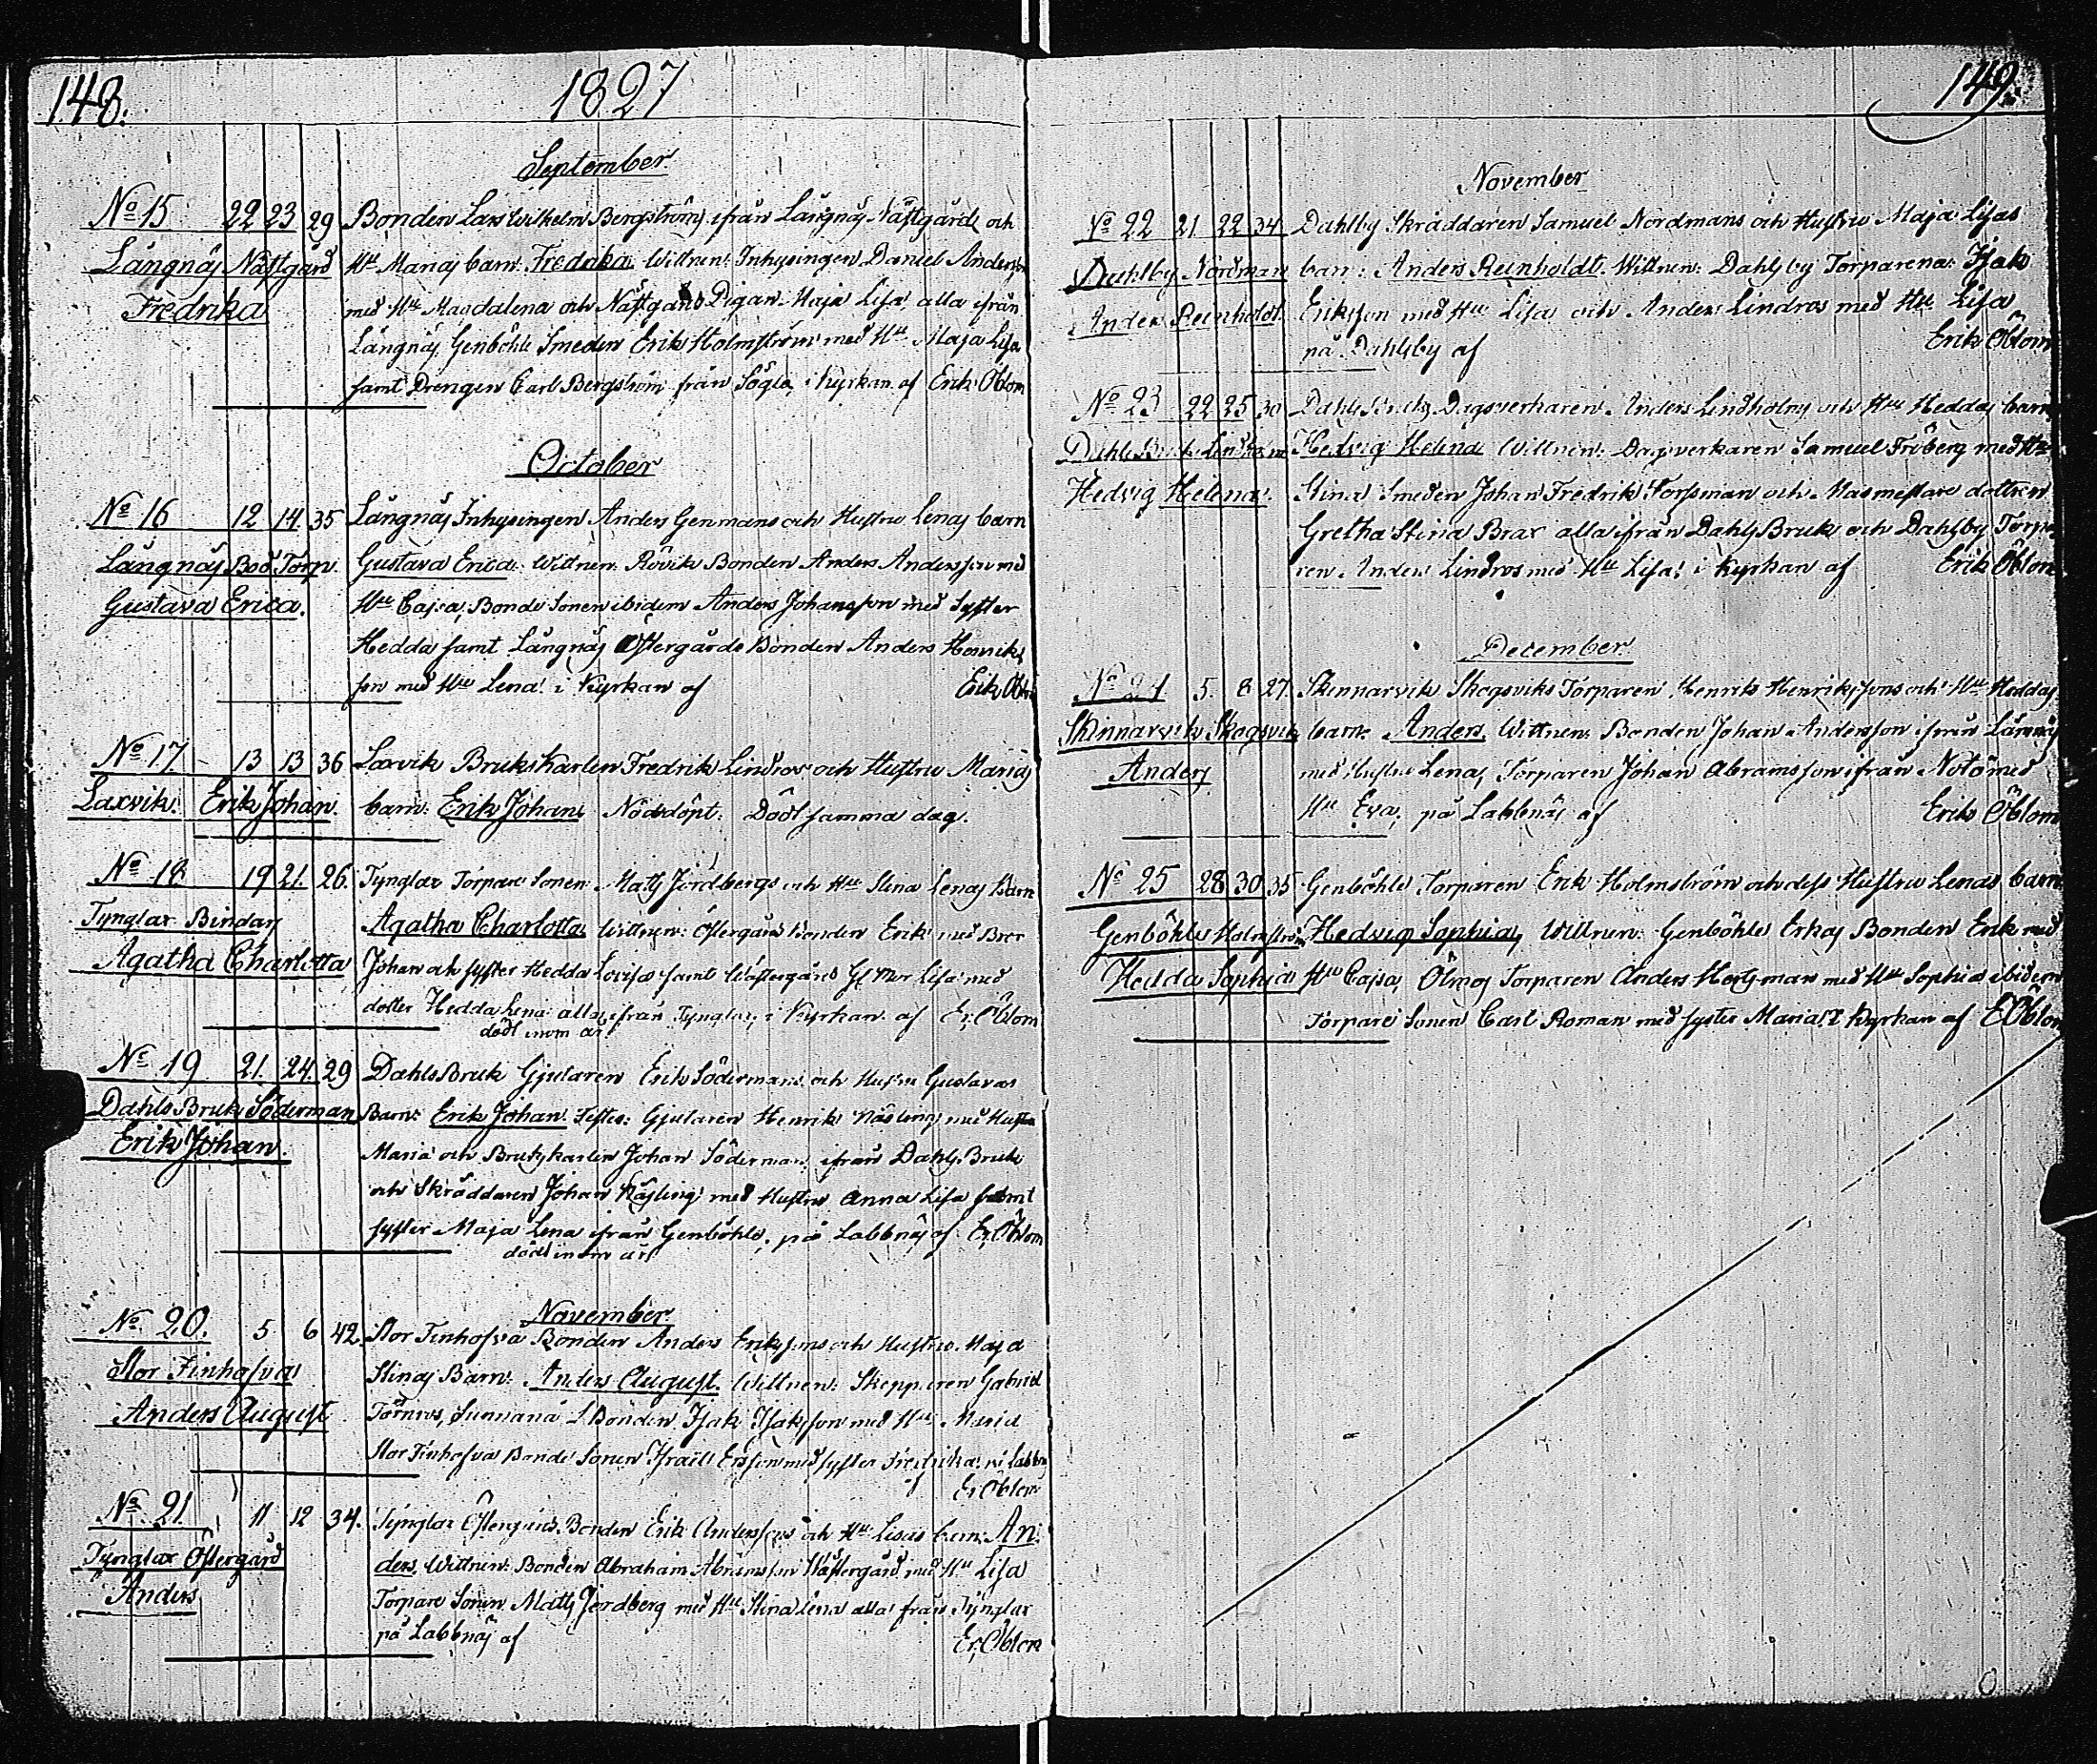 148.
1827
September
No 15 22 23 29 Bonden Lars Wilhelm Bergströms ifrån Långnäs Näſtgård och
Långnäs Näſtgård Hu Marias barn: Fredrika. Wittnen: Inhysingen Daniel Andersson
Fredrika med Hu Magdalena och Näſtgårds Pigan Maja Lisa alla ifrån
Långnäs, Genböhle Smeden Erik Holmström med Hu Maja Lisa
samt Drengen Carl Bergström från Sögla, i Kyrkan af Erik Öblom
October
No 16 12 14. 35 Långnäs Inhysingen Anders Genmans och Hustru Lenas barn
Långnäs Bod Torp. Gustava Erica. Wittnen: Rövik Bonden Anders Andersson med
Gustava Erica. Hu Cajsa, Bonde Sonen ibidem Anders Johansson med Syster
Hedda samt Långnäs Östergårds Bonden Anders Henriks
son med Hu Lena! i Kyrkan af Erik Öblom
No 17 13 13 36 Laxvik Bruks Karlen Fredrik Lindros och Hustru Marias
Laxvik. Erik Johan. barn: Erik Johan, Nöddöpt. Dödt samma dag.
No 18 19 21. 26. Tynglax Torpare Sonen Matts Jordbergs och Hu Stina Lenas Barn
Tynglax Bindas Agatha Charlotta, Wittnen: Östergårds Bonden Erik med Bror
Agatha Charlotta Johan och syster Hedda Lovisa samt Wästergårds Gl Mor Lisa med
dotter Hedda Lena alla ifrån Tynglax, i Kyrkan af Er. Öblom
dödt inom år
No 19 21. 24. 29 Dahls Bruk Gjutaren Erik Södermans och Hustru Gustavas
Dahls Bruk Söderman Barn: Erik Johan. Testes: Gjutaren Henrik Näsling med Hustru
Erik Johan. Maria och Brukskarlen Johan Söderman ifrån Dahls Bruk
och Skräddaren Johan Näsling med Hustru Anna Lisa samt
syster Maja Lena ifrån Genböhle, på Labbnäs af Er. Öblom
dödt inom år
November
No 20. 5 6 42. Stor Finhofva Bonden Anders Erikssons och Hustru Maja
Stor Finhofva Stinas Barn: Anders August. Wittnen: Skepparen Gabriel
Anders August Törnros, Bonden Isak Isaksson med Hu Maria
Stor Finhofva Bonde Sonen Israel Ersson med syster Fredrika, på Labbnäs
af Er. Öblom
No. 21 11 12 34. Tynglax Östergårds Bonden Erik Anderssons och Hu Lisas barn: An-
Tynglax Östergård ders. Wittnen: Bonden Abraham Abramsson Wästergård med Hu Lisa
Anders Torpare Sonen Matts Jordberg med Hu Stina Lena alla från Tynglax
på Labbnäs af Er. Öblom
149.
November
No 22 21 22 34 Dahlsby Skräddaren Samuel Nordmans och Hustru Maja Lisas
Dahlsby Nordman barn: Anders Reinholdt. Wittnen: Dahlsby Torparena: Isak
Anders Reinholdt. Eriksson med Hu Lisa och Anders Lindros med Hu Lisa
på Dahlsby af Erik Öblom
No 23 22 25 30 Dahls Bruks Dagsverkaren Anders Lindholms och Hu Heddas barn
Dahls Bruk Lindholm Hedvig Helena Wittnen: Dagsverkaren Samuel Fröberg med Hu
Hedvig Helena. Stina Smeden Johan Fredrik Forssman och Masmästare dottren
Gretha Stina Brax alla ifrån Dahls Bruk och Dahlsby Torpa-
ren Anders Lindros med Hu Lisa! i Kyrkan af Erik Öblom
December
No 24 5. 8 27. Skinnarvik Skogsviks Torparen Henrik Henrikssons och Hu Heddas
Skinnarvik Skogsvik barn: Anders, Wittnen: Bonden Johan Andersson ifrån Långnäs
Anders med Hustru Lena, Torparen Johan Abramsson ifrån Notö med
Hu Eva, på Labbnäs af Erik Öblom
No 25 28 30 35 Genböhle Torparen Erik Holmström och dess Hustru Lenas barn
Genböhle Holmström Hedvig Sophia, Wittnen: Genböhle Erkas Bonden Erik med
Hedda Sophia Hu Cajsa, Ölmos Torparen Anders Hortsman med Hu Sophia ibidem
Torpare Sonen Carl Roman med syster Maria! I Kyrkan af E Öblom